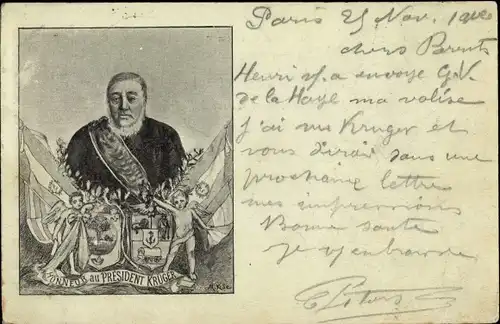 Paris 25 Nov. 1900
chers Parents
Henri m'a envoyé
de la Haye ma valise
j'ai vu Kruger et
vous dirai dans une
prochaine lettre
mes impressions
Bonne santé
je v/ embrasse
HONNEUR au PRÉSIDENT KRUGER